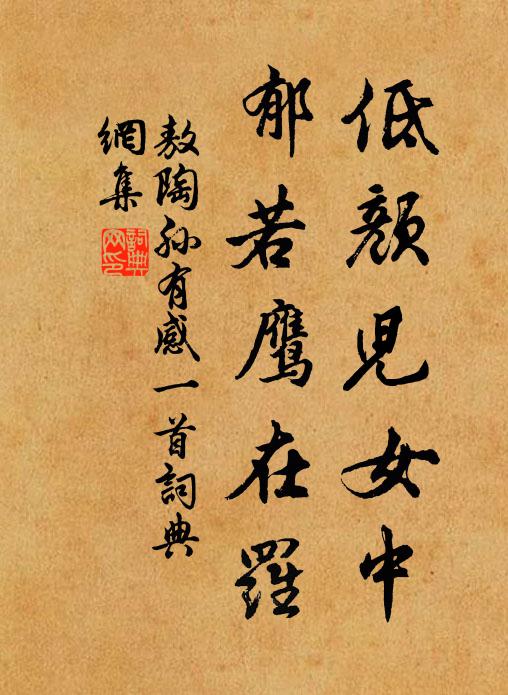 低顏兒女中
郁若鷹在羅
敖陶孙有感一首詞典
網集
詞典
网印